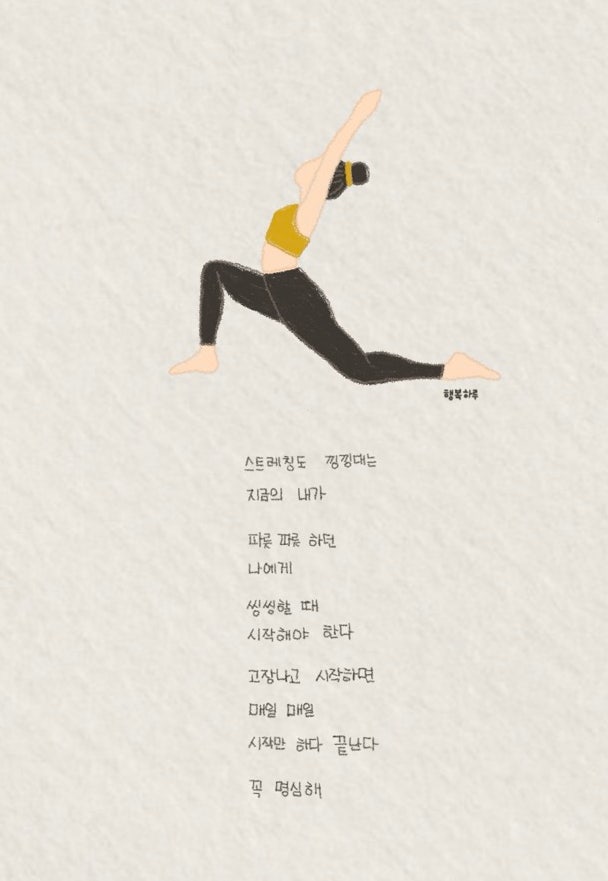 행복하루
스트레칭도 낑낑대는
지금의 내가
파릇 파릇 하던
나에게
씽씽할 때
시작해야 한다
고장나고 시작하면
매일 매일
시작만 하다 끝난다
꼭 명심해